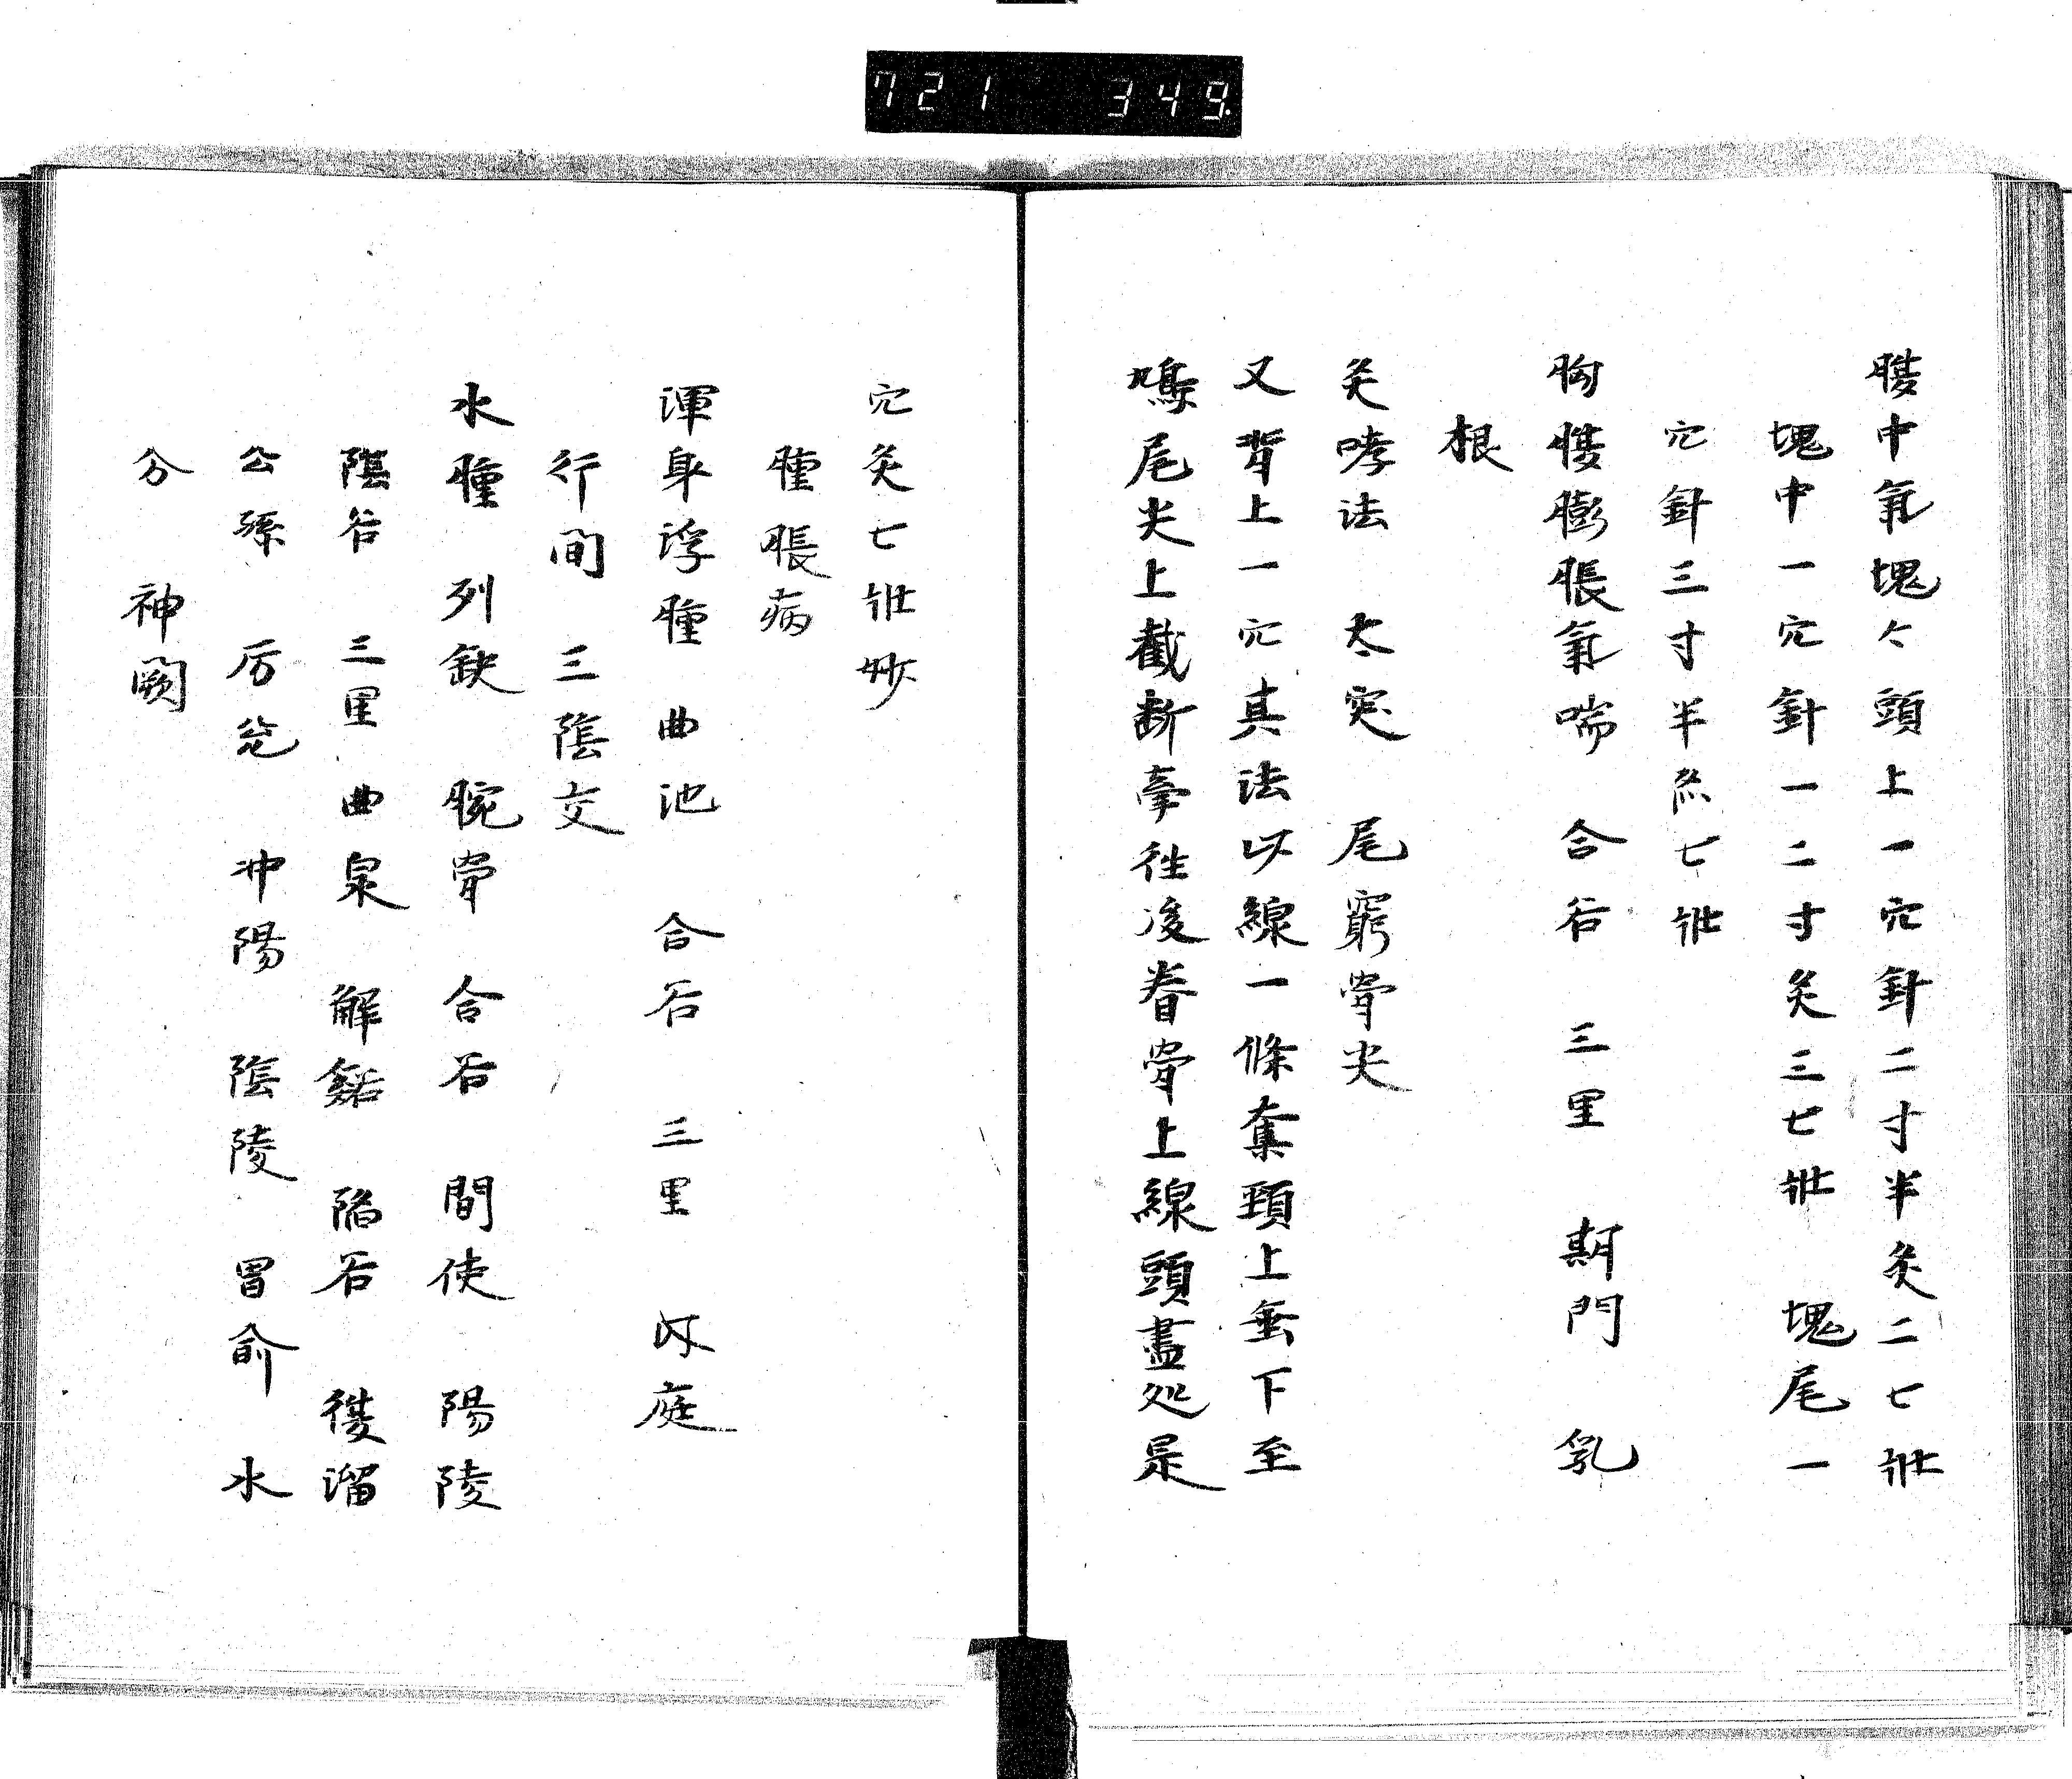 721 349
腹中氣塊々頭上一穴針二寸半灸二七壯
塊中一穴針一二寸灸三七壯 塊尾一
穴針三寸半灸七壯
胸腹膨脹氣喘 合谷 三里 期門 乳
根
灸哮法 天突 尾窮骨尖
又背上一穴其法以線一條套頸上垂下至
鳩尾尖上截断牽往後脊骨上線頭盡処是
穴灸七壯妙
腫脹病
渾身浮腫 曲池 合谷 三里 内庭
行間 三陰交
水腫 列缺 腕骨 合谷 間使 陽陵
陰谷 三里 曲泉 解谿 陷谷 復溜
公孫 厉兌 冲陽 陰陵 胃俞 水
分 神闕